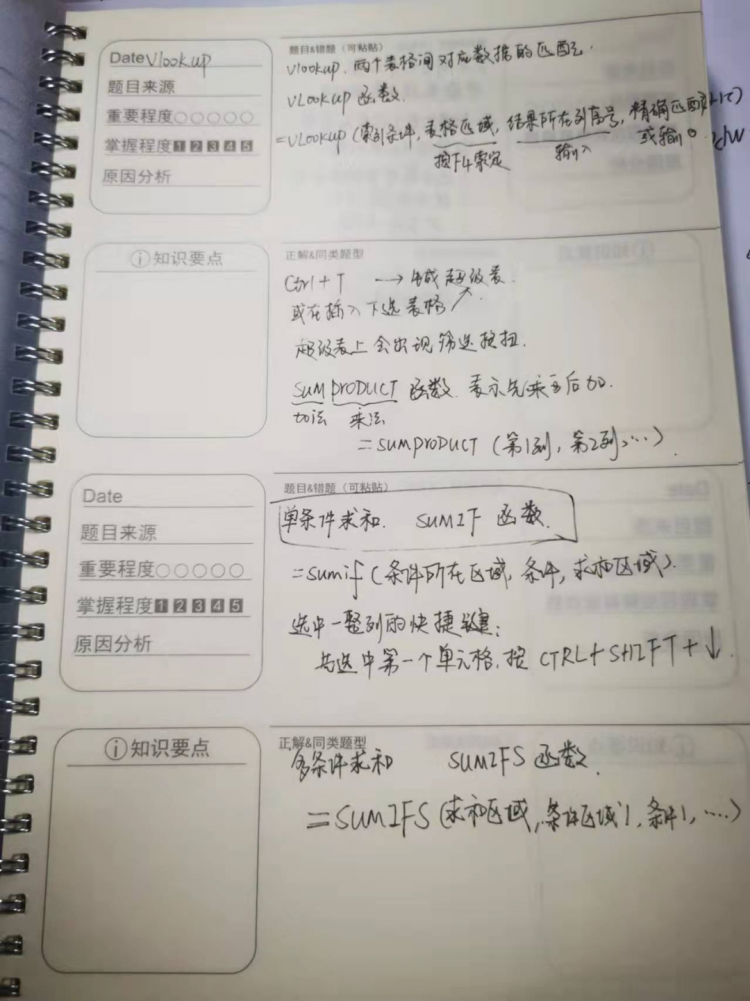 Date Vlookup
题目来源
重要程度○○○○○
掌握程度1 2 3 4 5
原因分析
题目&错题（可粘贴）
Vlookup. 两个表格间对应数据的匹配.
VLookup 函数.
=VLookup(索引条件, 表格区域, 结果所在列序号, 精确匹配
按F4锁定 输入 或输入0.
ⓘ知识要点
正解&同类题型
Ctrl+T → 生成超级表.
或在插入下选表格
超级表上会出现筛选按扭.
SUMPRODUCT 函数. 表示先乘至后加.
加法 乘法
=SUMPRODUCT (第1列, 第2列, …)
Date
题目来源
重要程度○○○○○
掌握程度1 2 3 4 5
原因分析
题目&错题（可粘贴）
单条件求和. SUMIF 函数.
=sumif(条件所在区域, 条件, 求和区域).
选中一整列的快捷键:
选中第一个单元格. 按 CTRL+SHIFT+↓
ⓘ知识要点
正解&同类题型
多条件求和 SUMIFS 函数.
=SUMIFS(求和区域, 条件区域1, 条件1, ……)